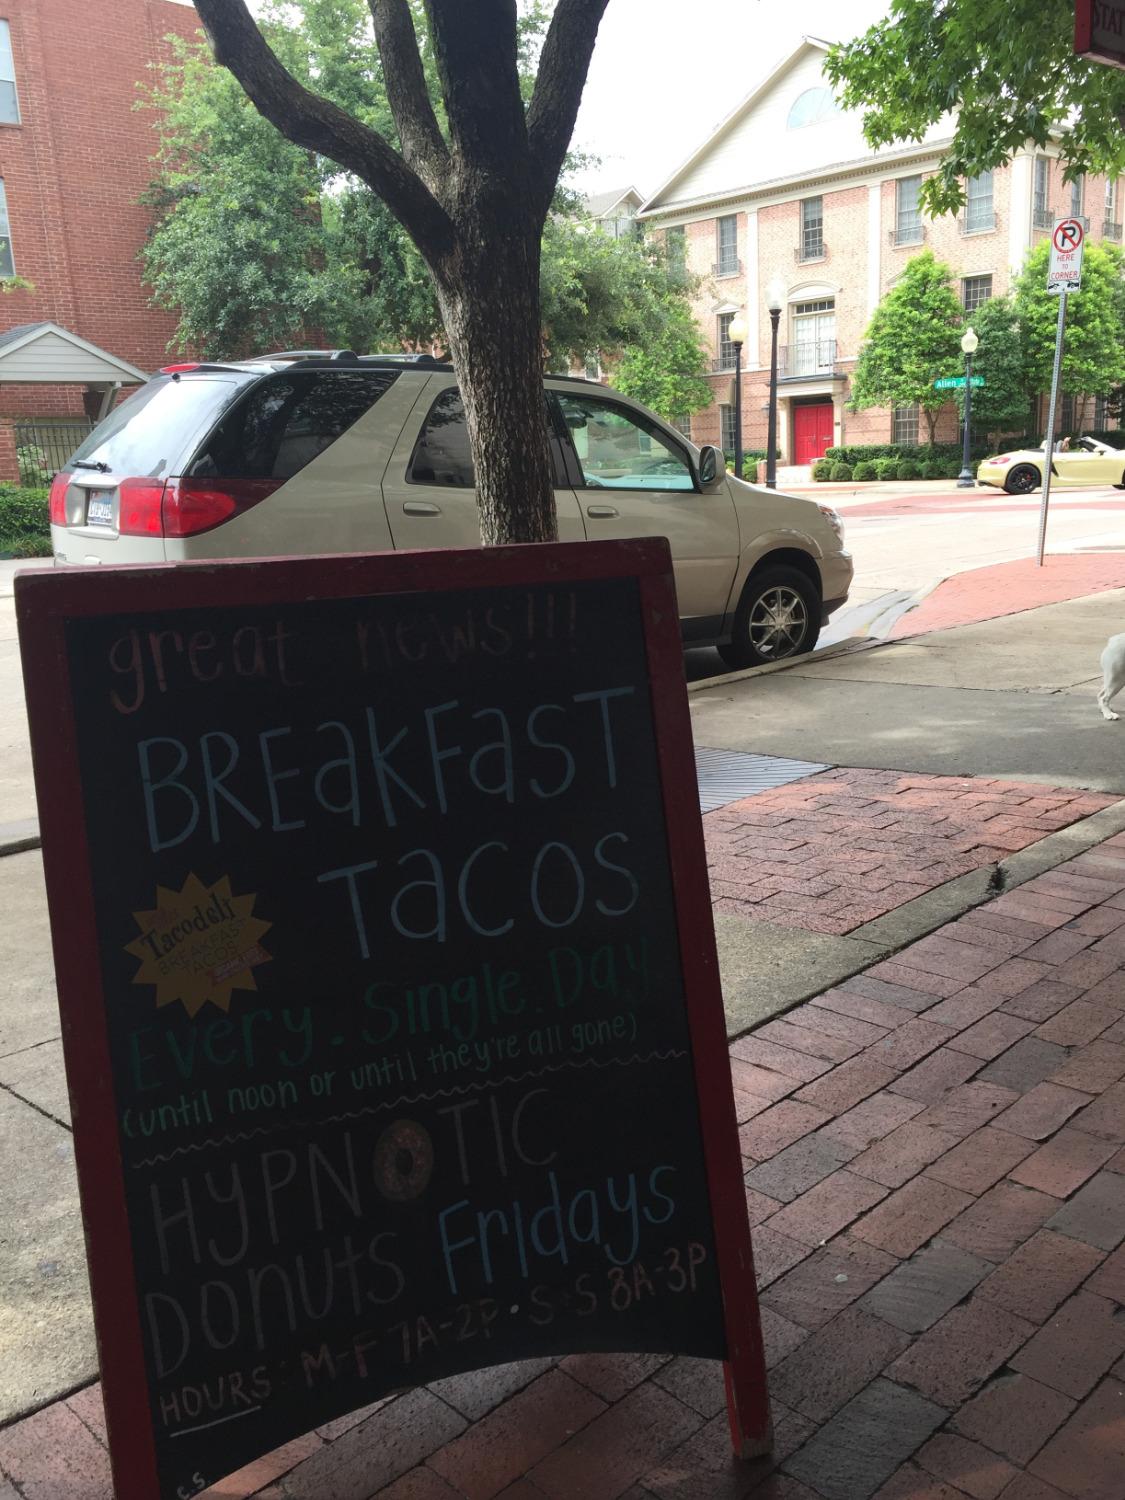 STAT
P
HERE
TO
CORNER
Allen
great news!!!
BREAKFAST
TACOS
Tacodeli
BREAKFAST
TACOS
Every. Single. Day
(until noon or until they're all gone)
HYPNOTIC
DONUTS Fridays
HOURS: M-F 7A-2P • S-S 8A-3P
C.S.